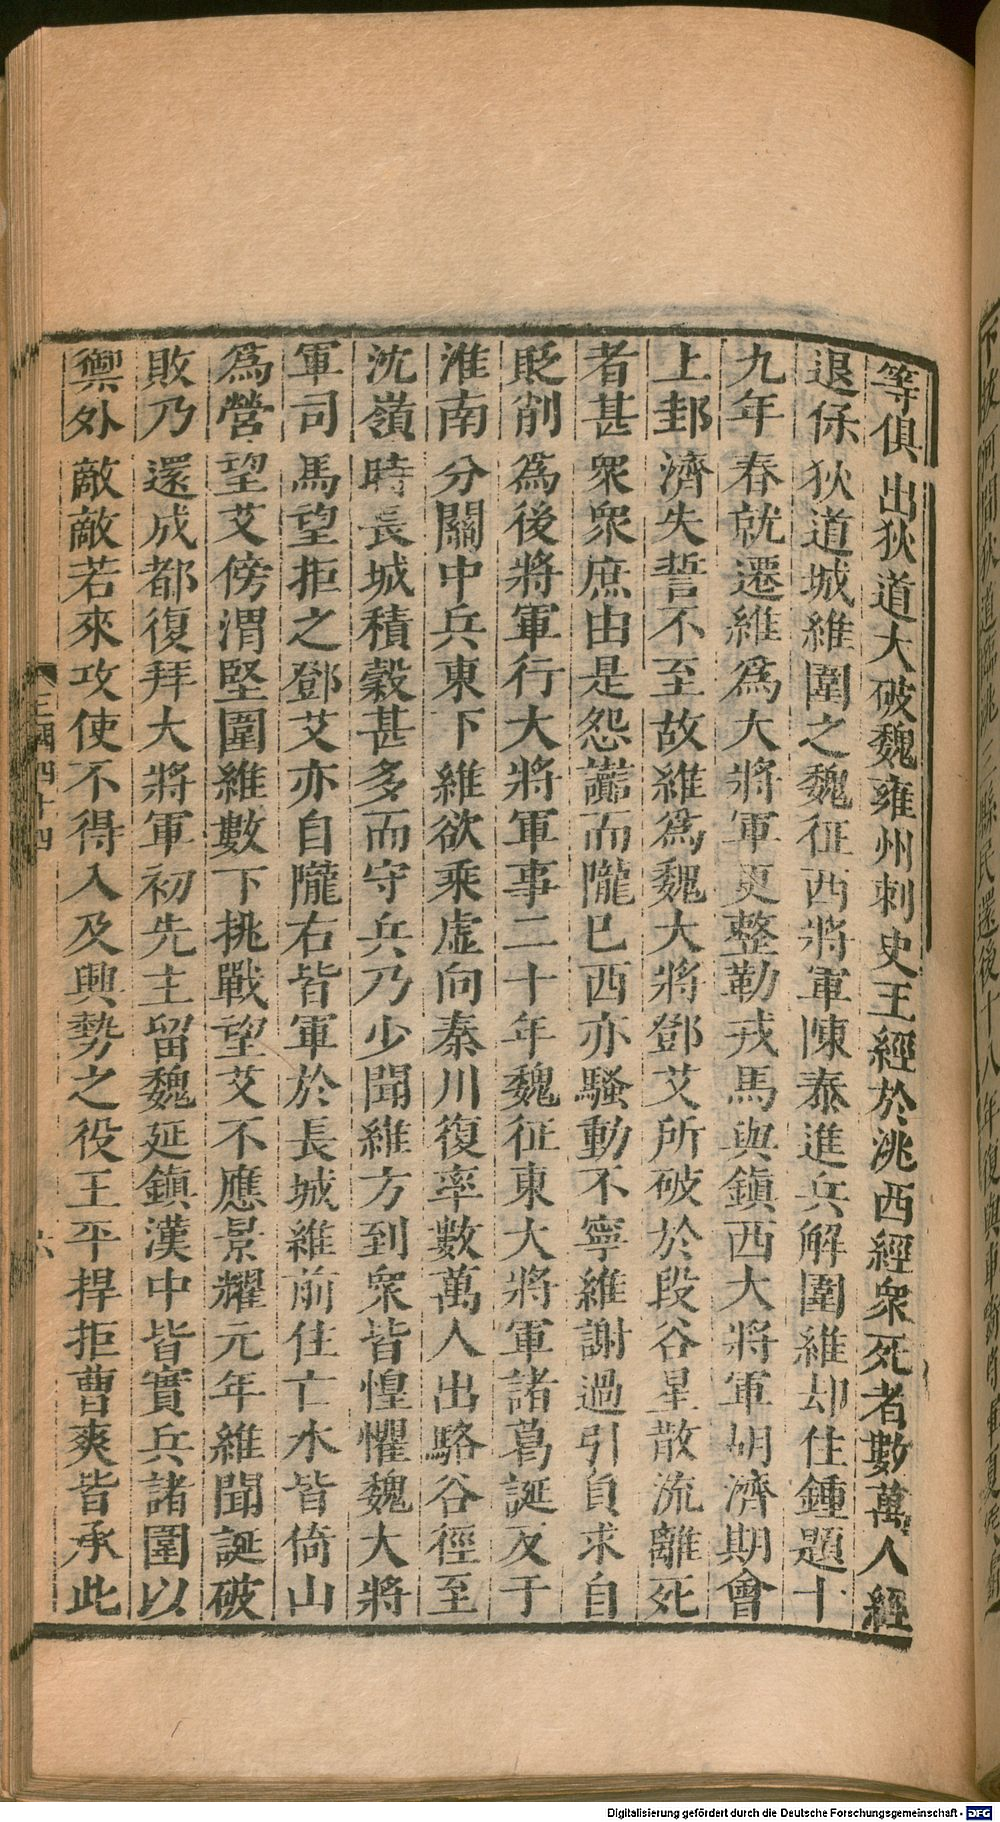 等俱出狄道大破魏雍州刺史王經於洮西經衆死者數萬人經
退保狄道城維圍之魏征西將軍陳泰進兵解圍維却住鍾題十
九年春就遷維爲大將軍更整勒戎馬與鎮西大將軍胡濟期會
上邽濟失誓不至故維爲魏大將鄧艾所破於段谷星散流離死
者甚衆衆庶由是怨讟而隴已西亦騷動不寧維謝過引負求自
貶削爲後將軍行大將軍事二十年魏征東大將軍諸葛誕反于
淮南分關中兵東下維欲乘虛向秦川復率數萬人出駱谷徑至
沈嶺時長城積穀甚多而守兵乃少聞維方到衆皆惶懼魏大將
軍司馬望拒之鄧艾亦自隴右皆軍於長城維前住亡水皆倚山
爲營望艾傍渭堅圍維數下挑戰望艾不應景耀元年維聞誕破
敗乃還成都復拜大將軍初先主留魏延鎮漢中皆實兵諸圍以
禦外敵敵若來攻使不得入及興勢之役王平捍拒曹爽皆承此
三國四十四
六
Digitalisierung gefördert durch die Deutsche Forschungsgemeinschaft - DFG